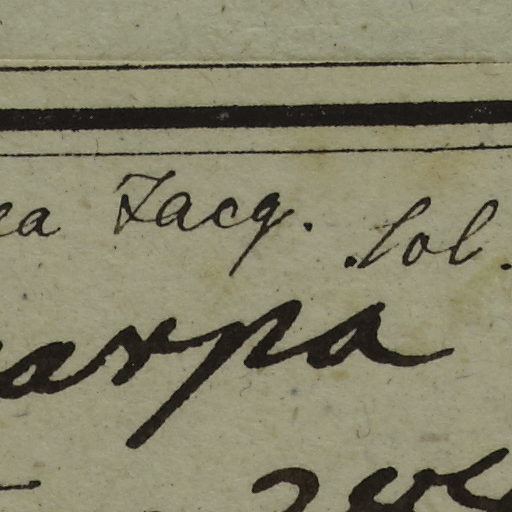 ea Jacq. Sol.
carpa